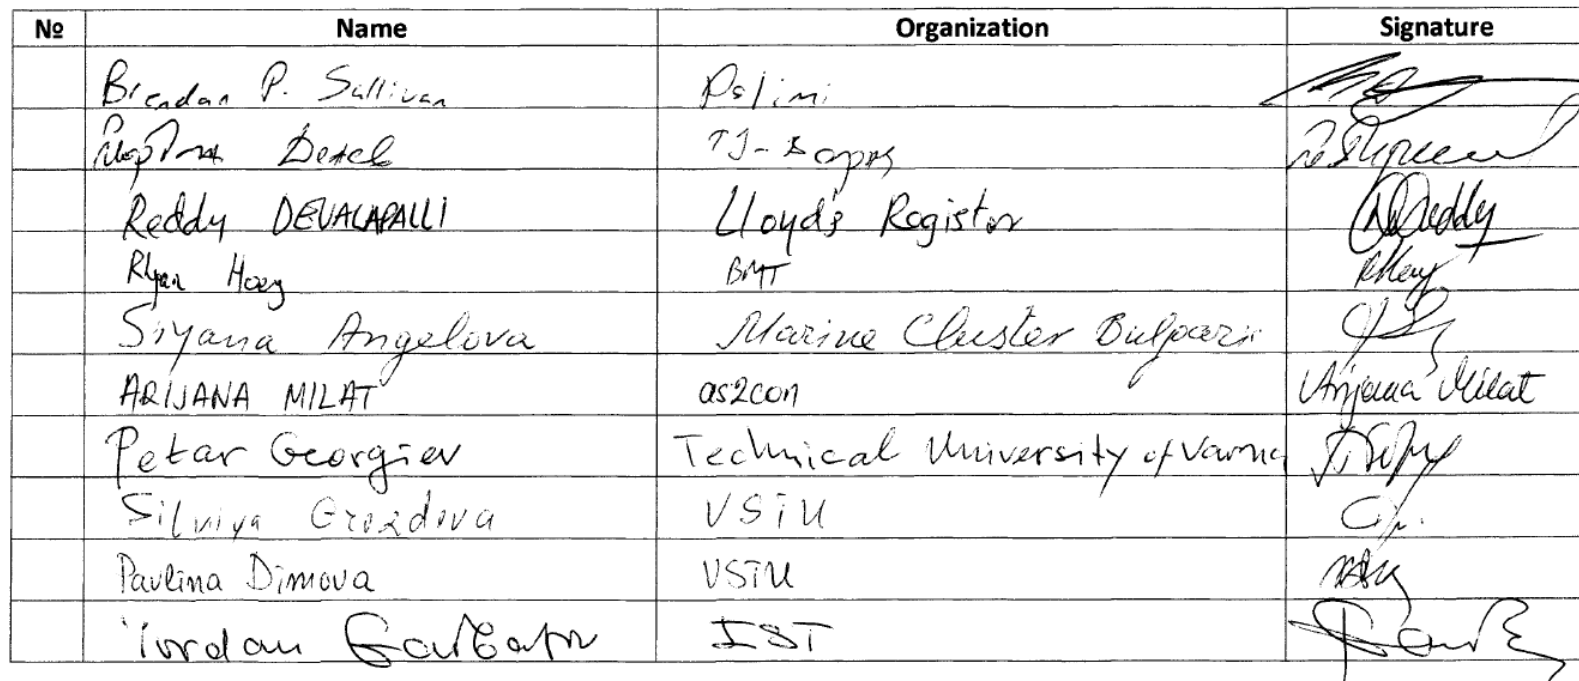 № Name Organization Signature
Brendan P. Sullivan Polimi
Reddy DEVALAPALLI Lloyd's Register Reddy
Rhyan Hoey BMT
Siyana Angelova Marine Cluster Bulgaria
ARIJANA MILAT as2con Arijana Milat
Petar Georgiev Technical University of Varna
Silviya Grozdeva VSTU
Pavlina Dimova VSTU
Yordan Garbatov IST